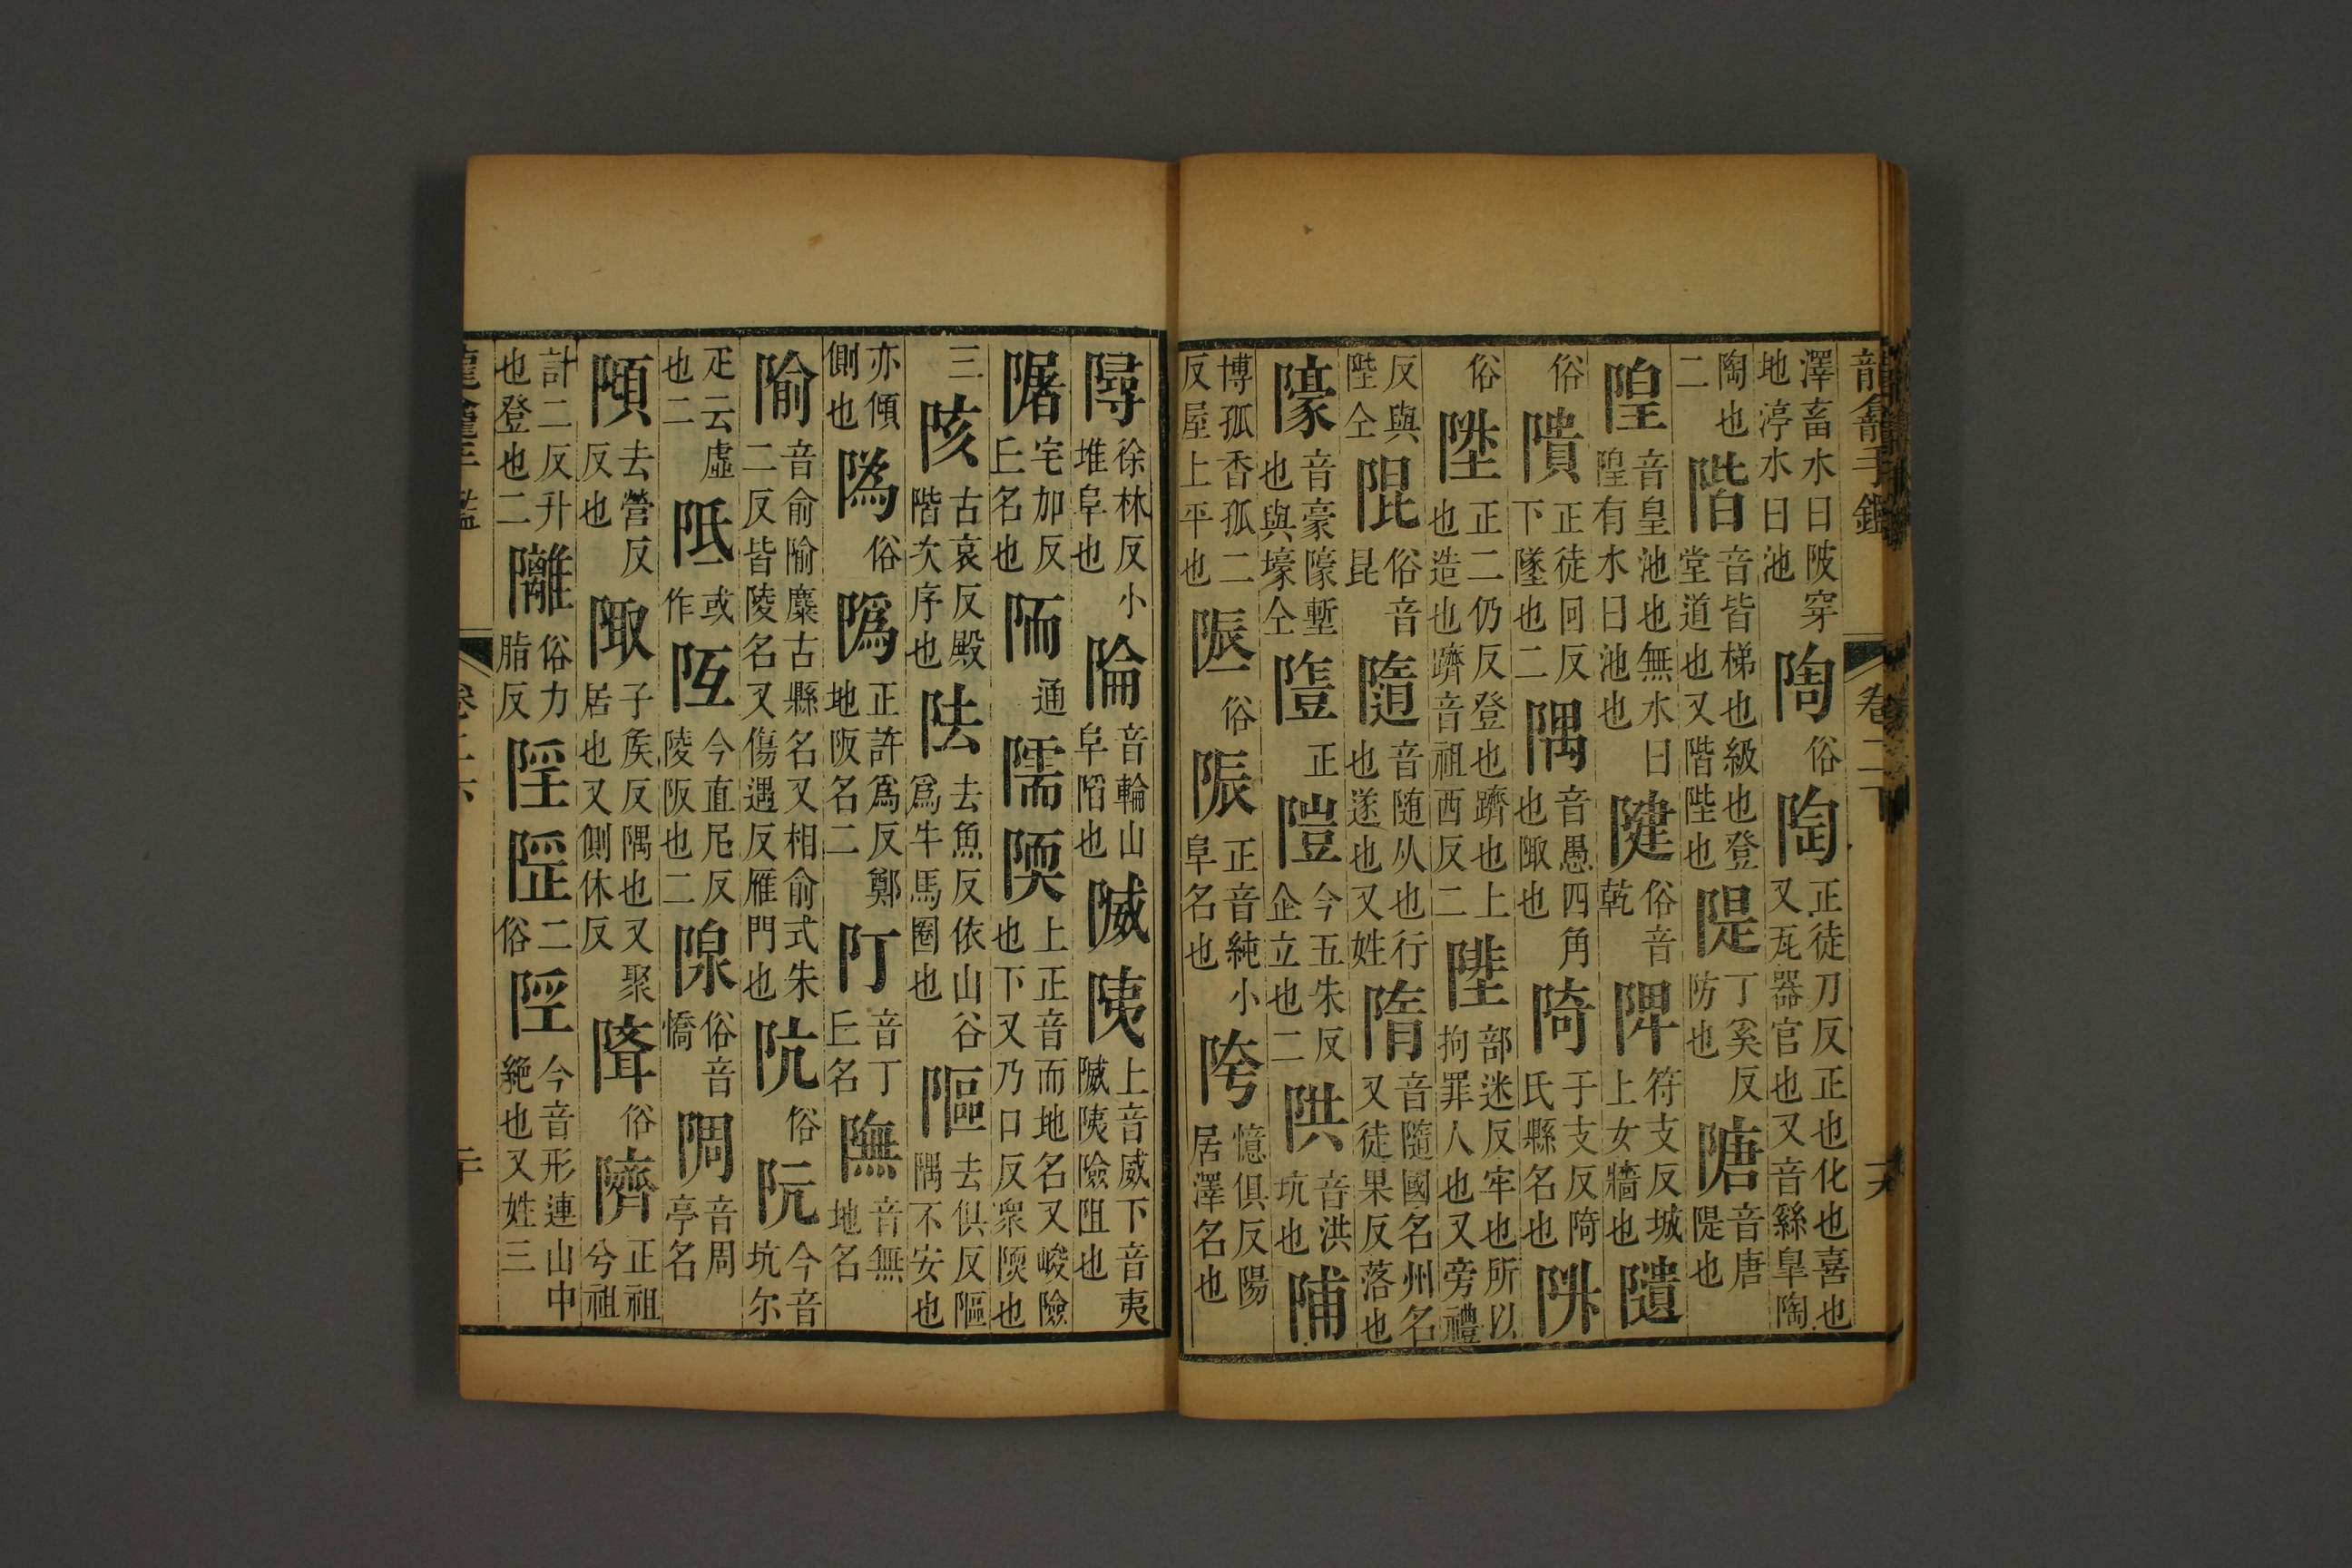 龍龕手鑑 卷二
澤畜水曰陂穿地渟水曰池 陶俗 陶正徒刀反正也化也喜也又瓦器官也又音繇臯陶
陶也二 階音皆梯也級也登堂道也又階陛也 隄丁奚反防也 隚音唐隄也
隍音皇池也無水曰隍有水水曰池也 𨺩俗音乾 陴符支反城上女牆也 隤
俗 隤正徒回反下墜也二 隅音愚四角也陬也 陭于支反陭氏縣名也 阩
俗 陞正二仍反登也躋也上也造也躋音祖西反二 陛部迷反牢也所以拘罪人也又旁禮
反與陛仝 䧊俗音昆 隨音随从也行也遂也又姓 隋音隨國名州名又徒果反落也
濠音豪隊塹也與壕仝 隑正 隑今五朱反企立也二 䧆音洪坑也 陠
博孤香孤二反屋上平也 陙俗 陙正音純小阜名也 䧢憶俱反陽居澤名也
𨼔徐林反小堆阜也 陯音輪山阜陷也 隇陦上音威下音夷隇陦險阻也
䧮宅加反丘名也 陑通 隭陾上正音而地名又峻險也下又乃口反衆陾也
三 陔古哀反殿階次序也 阹去魚反依山谷爲牛馬圈也 䧢去俱反䧢隅不安也
亦傾側也 隝俗 隝正許爲反鄭地阪名二 阠音丁丘名 䧗音無地名
隃音俞隃麋古縣名又相俞式朱二反皆陵名又傷遇反雁門也 阬俗 阮今音坑尓
疋云虛也二 阺或作 坻今直尼反陵阪也二 隙俗音憍 䧓音周亭名
䪴去營反反也 陬子矦反隅也又聚居也又側休反 𨹿俗 隮正祖兮祖
計二反升也登也二 離俗力脂反 陘陘二俗 陘今音形連山中絶也又姓三
龍龕手鑑 卷二